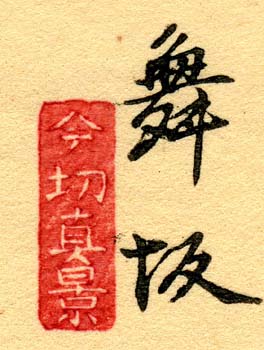 舞坂
今切真景